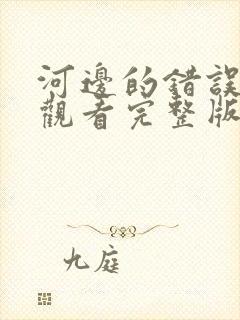 河邊的錯誤
觀看完整版
九庭